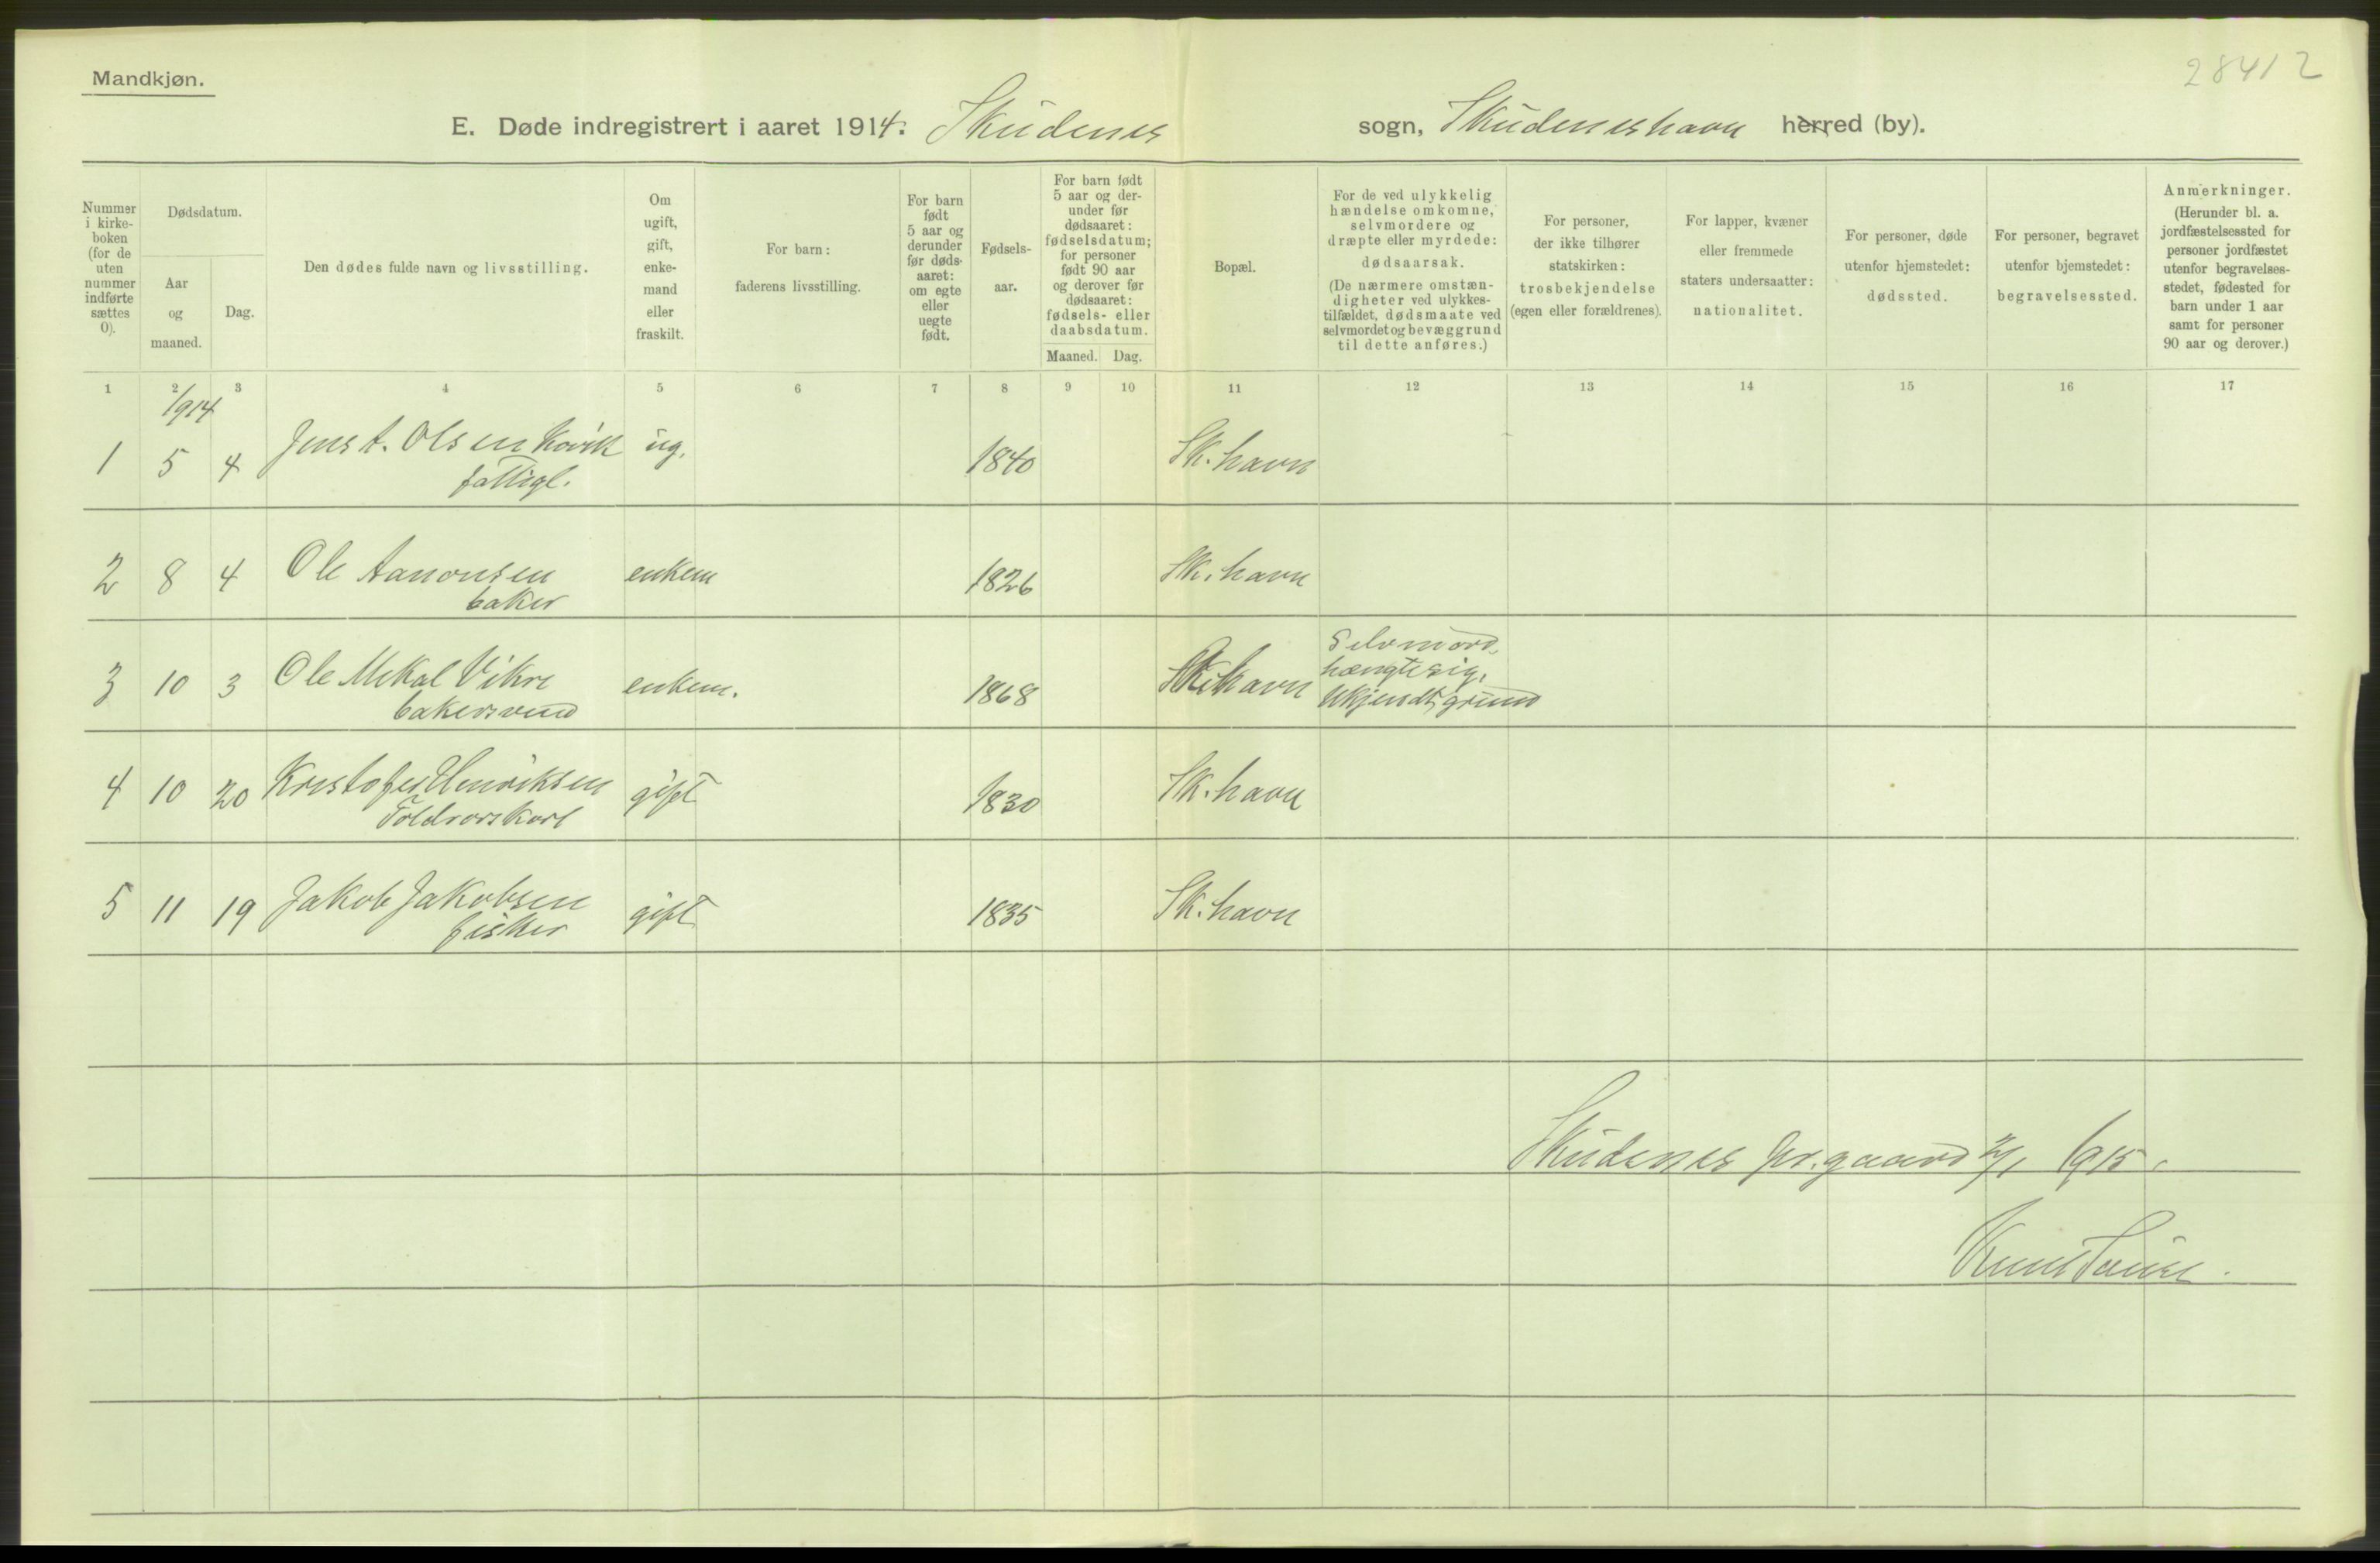 28412
Mandkjøn.
E. Døde indregistrert i aaret 1914. Skudenes sogn, Skudeneshavn herred (by).
Nummer i kirke-boken (for de uten nummer indførte sættes 0).
Dødsdatum.
Aar og maaned.
Dag.
Den dødes fulde navn og livsstilling.
Om ugift, gift, enke-mand eller fraskilt.
For barn: faderens livsstilling.
For barn født 5 aar og derunder før døds-aaret: om egte eller uegte født.
Fødsels-aar.
For barn født 5 aar og der-under før dødsaaret: fødselsdatum; for personer født 90 aar og derover før dødsaaret: fødsels- eller daabsdatum.
Maaned. Dag.
Bopæl.
For de ved ulykkelig hændelse omkomne, selvmordere og dræpte eller myrdede: dødsaarsak.
(De nærmere omstæn-digheter ved ulykkes-tilfældet, dødsmaate ved selvmordet og bevæggrund til dette anføres.)
For personer, der ikke tilhører statskirken: trosbekjendelse (egen eller forældrenes).
For lapper, kvæner eller fremmede staters undersaatter: nationalitet.
For personer, døde utenfor hjemstedet: dødssted.
For personer, begravet utenfor hjemstedet: begravelsessted.
Anmerkninger.
(Herunder bl. a. jordfæstelsessted for personer jordfæstet utenfor begravelses-stedet, fødested for barn under 1 aar samt for personer 90 aar og derover.)
1 2 3 4 5 6 7 8 9 10 11 12 13 14 15 16 17
1914
1 5 4 Jens A. Olsen Kvik ug. 1840 Sk.havn
fattigl.
2 8 4 Ole Aanonsen enkem 1826 Sk.havn
baker
3 10 3 Ole Mikal Vikre enkem. 1868 Sk.havn Selvmord,
hængte sig,
bakersvend Ukjendt grund
4 10 20 Kristofer Henriksen gift 1830 Sk.havn
Toldrorskarl
5 11 19 Jakob Jakobsen gift 1835 Sk.havn
fisker
Skudenes pr.gaard 2/1 1915.